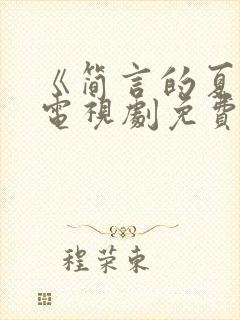 《简言的夏
電視劇免費
程荣東